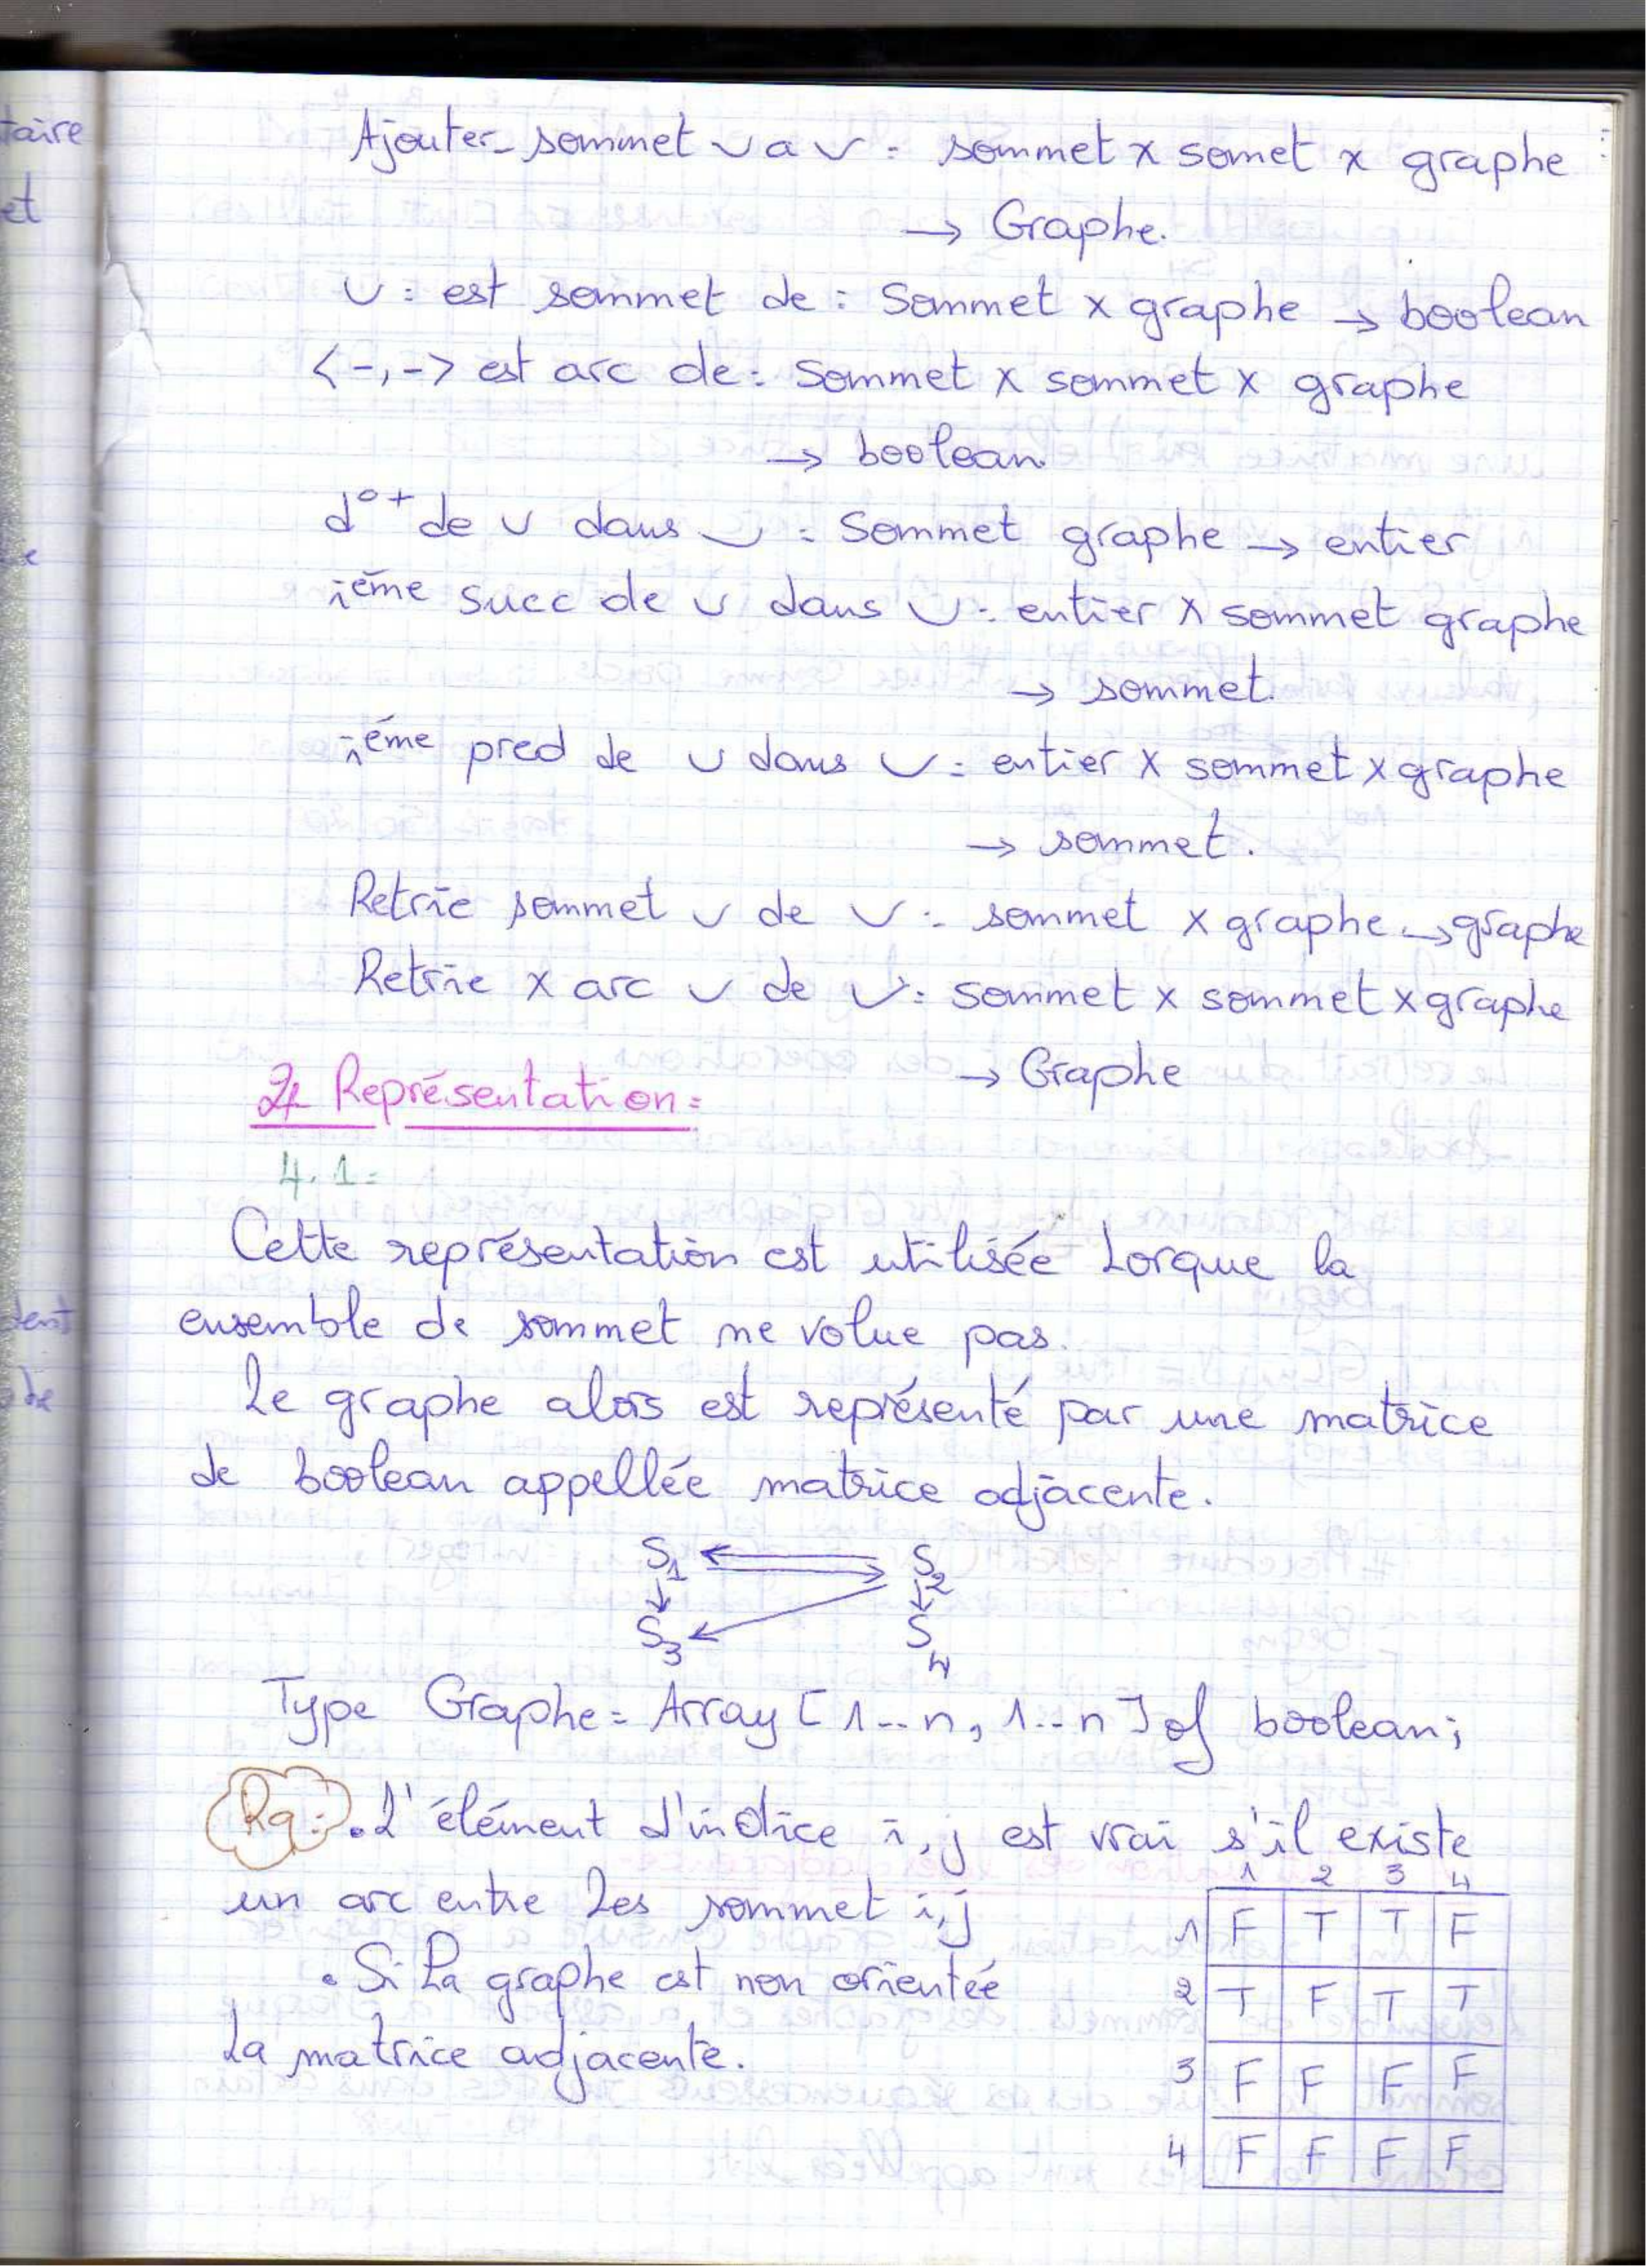 taire
et
Ajouter_sommet ∪ a ∪ : sommet x somet x graphe
→ Graphe.
∪ : est sommet de : Sommet x graphe → boolean
<-,-> est arc de : Sommet x sommet x graphe
→ boolean.
d°+ de ∪ dans ∪ : Sommet graphe → entier
ième succ de ∪ dans ∪ : entier x sommet graphe
→ sommet.
ième pred de ∪ dans ∪ : entier x sommet x graphe
→ sommet.
Retrie sommet ∪ de ∪ : sommet x graphe → graphe
Retrie x arc ∪ de ∪ : sommet x sommet x graphe
→ Graphe
Représentation :
4.1 :
Cette représentation est utilisée Lorque la
ensemble de sommet ne volue pas.
Le graphe alors est représenté par une matrice
de boolean appellée matrice adjacente.
S1 S2
S3 S4
Type Graphe = Array [1..n, 1..n] of boolean;
Rq : . L'élément d'indice i, j est vrai s'il existe
un arc entre Les sommet i,j
. Si La graphe est non orientée
La matrice adjacente.
1 2 3 4
1 F T T F
2 T F T T
3 F F F F
4 F F F F